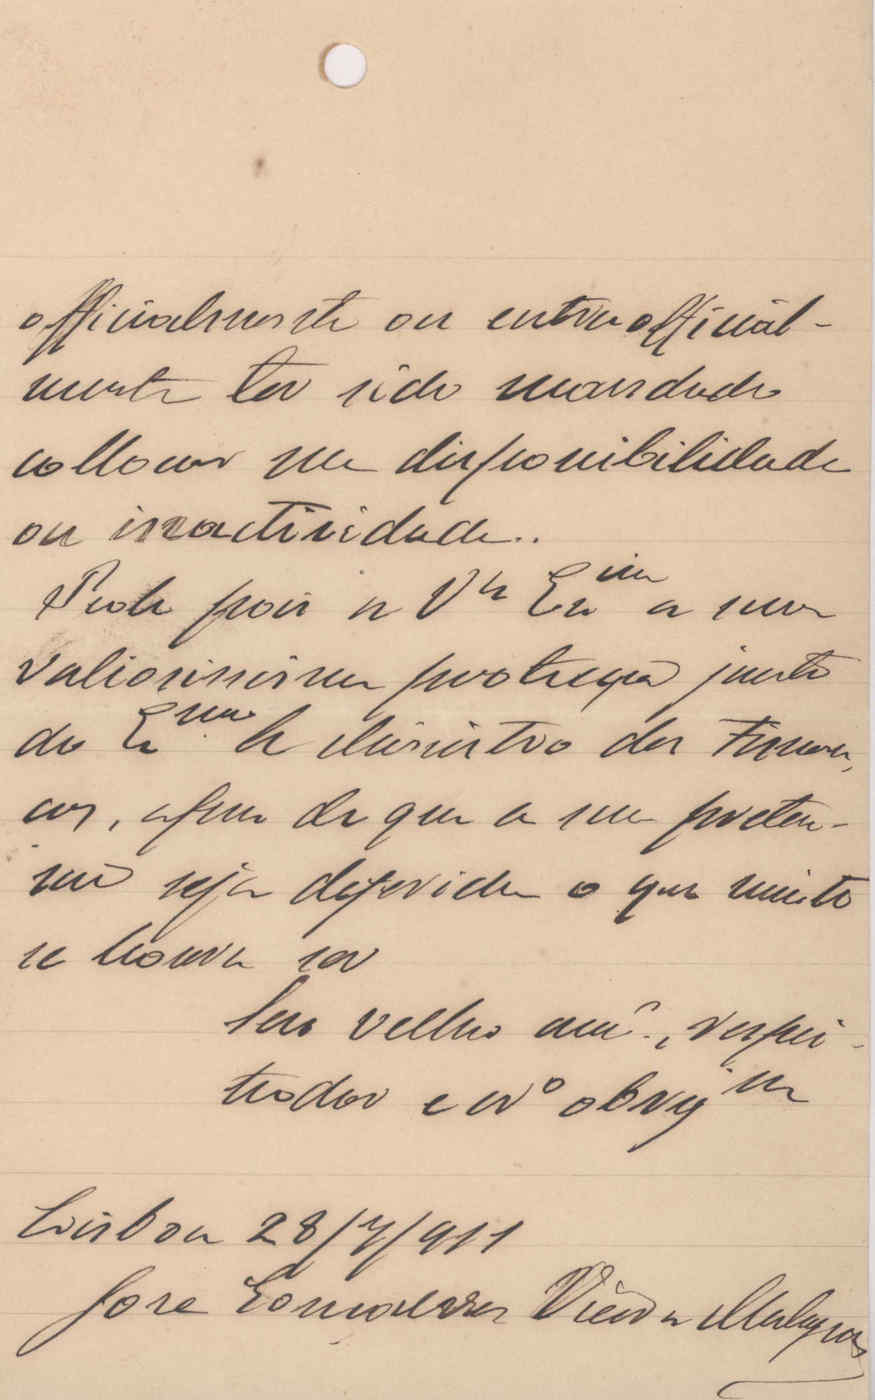 officialmente ou extraofficial-
mente ter sido mandado
collocar na disponibilidade
ou inactividade..
Pede pois a V.ª Ex.ma a sua
valiosissima protecção junto
do Ex.mo Sr Ministro das Finan,
ças, afim de que a sua preten-
são seja deferida o que muito
se honra ser
Seu velho amº., respei-
tador e crº obrigmo
Lisboa 28/7/911
José Gonçalves Vieira